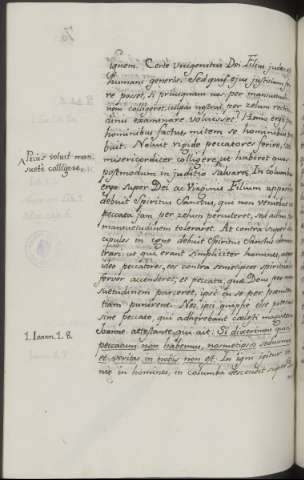 ignem. Certe unigenitus Dei Filius judex est
humani generis. Sed quis ejus justitiam fer-
re posset, si priusquam nos per mansuetudi-
nem colligeret, culpas nostras per zelum rectitu-
dinis examinare voluisset? Homo ergo pro
hominibus factus, mitem se hominibus præ-
buit. Noluit peccatores ferire, sed
misericorditer colligere, ut haberet quos
postmodum in juditio salvaret. In columba
ergo super Dei ac Virginis Filium apparere
debuit Spiritus Sanctus, qui non venerat ut
peccata jam per zelum percuteret, sed adhuc per
mansuetudinem toleraret. At contra super dis-
cipulos in igne debuit Spiritus Sanctus demons-
trari: ut qui erant simpliciter homines, atque
ideo peccatores, eos contra semetipsos spiritualis
fervor accenderet, et peccata, quæ Deus per man-
suetudinem parceret, ipsi in se per pœniten-
tiam punirent. Nec ipsi quippe esse poterant
sine peccato, qui adhærebant cœlesti magisterio
Joanne attestante, qui ait: Si dixerimus quia
peccatum non habemus, nosmetipsos seducimus,
et veritas in nobis non est. In igni igitur ve-
nit in homines, in columba descendit super
Prius voluit man-
sueté colligere.
1. Joann. 1. 8.